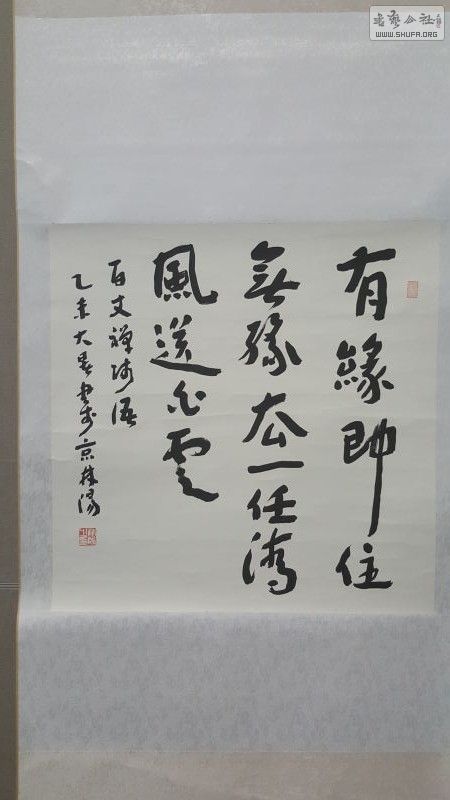 书艺公社
WWW.SHUFA.ORG
有緣即住
無緣去一任清
風送白雲
百丈禪師語
乙未大暑書於京